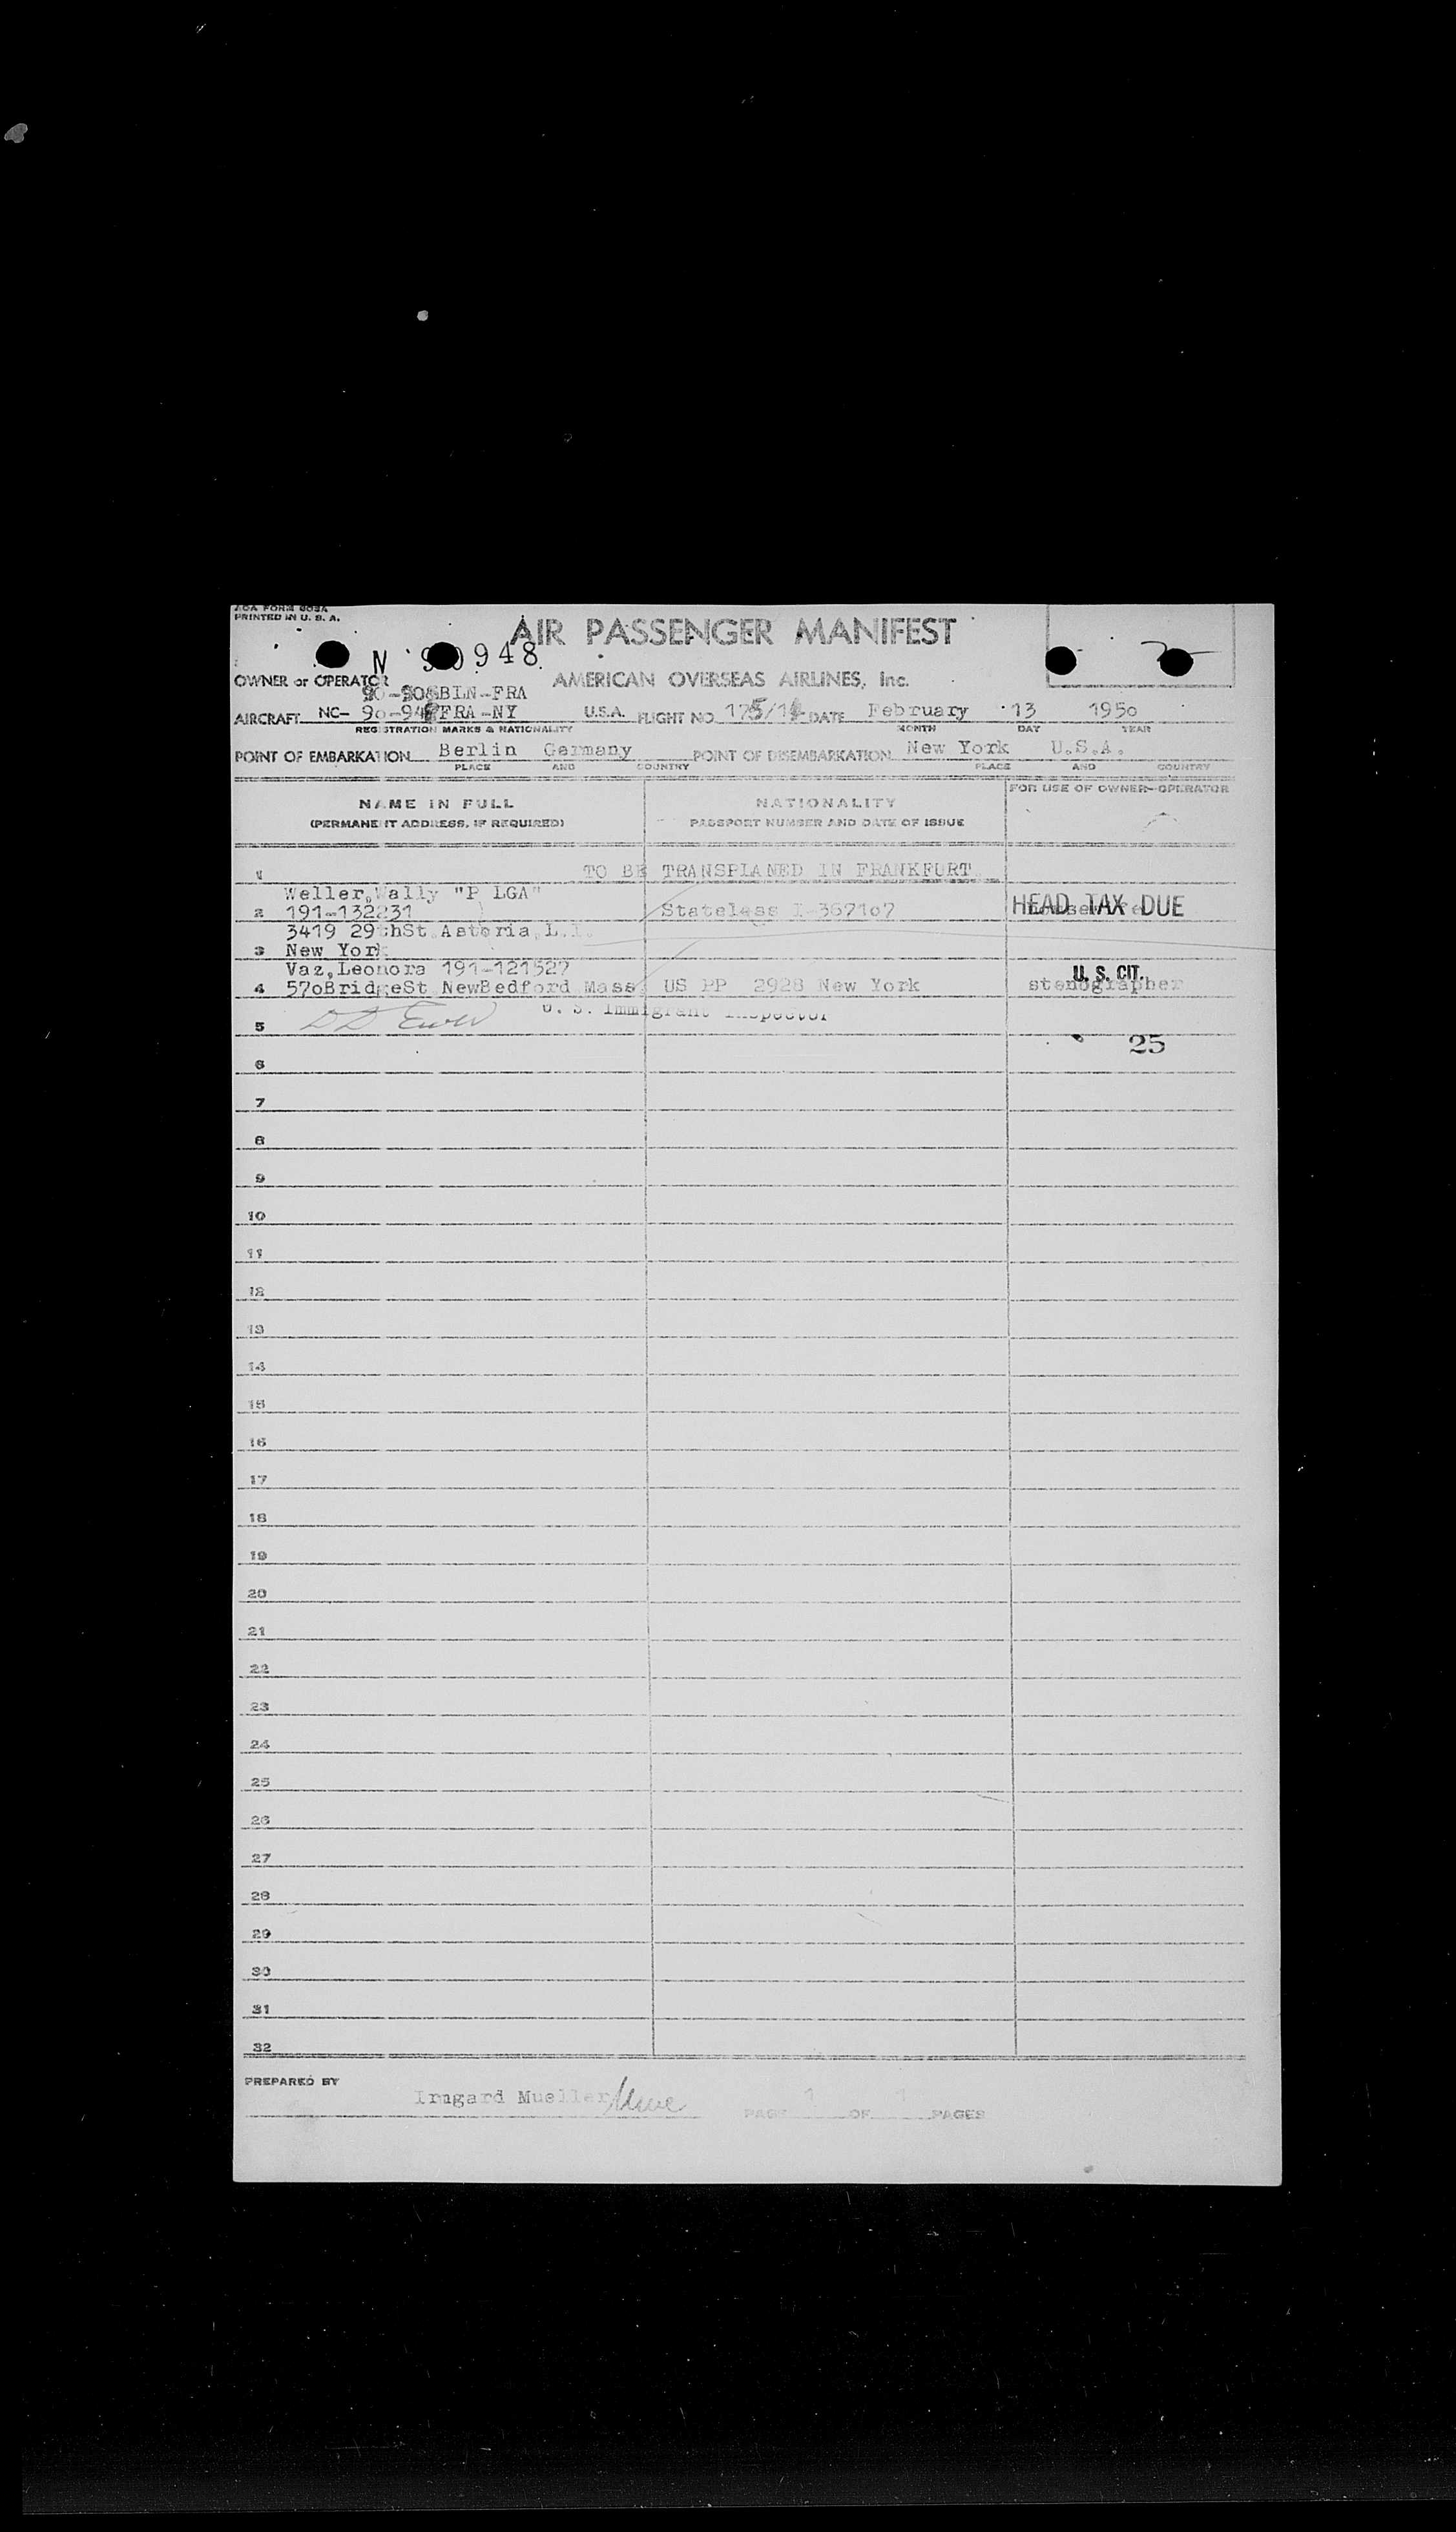 PRINTED IN U. S. A.
AIR PASSENGER MANIFEST
N 90948
OWNER or OPERATOR AMERICAN OVERSEAS AIRLINES, Inc.
BLN-FRA
AIRCRAFT NC- 9o-94 FRA-NY U.S.A. FLIGHT NO. DATE February 13 195o
REGISTRATION MARKS & NATIONALITY MONTH DAY YEAR
POINT OF EMBARKATION Berlin Germany POINT OF DISEMBARKATION New York U.S.A.
PLACE AND COUNTRY PLACE AND COUNTRY
FOR USE OF OWNER-OPERATOR
NAME IN FULL NATIONALITY
(PERMANENT ADDRESS, IF REQUIRED) PASSPORT NUMBER AND DATE OF ISSUE
1 TO BE TRANSPLANED IN FRANKFURT
Weller,Wally "P LGA"
2 191-132231 Stateless I-3671o7 HEAD TAX DUE
3419 29thSt.Astoria,L.I.
3 New York
Vaz,Leonora 191-121527 U. S. CIT.
4 57oBridgeSt NewBedford Mass. US PP 2928 New York stenographer
5 U. S. Immigrant Inspector
25
6
7
8
9
10
11
12
13
14
15
16
17
18
19
20
21
22
23
24
25
26
27
28
29
30
31
32
PREPARED BY
Irmgard Mueller PAGE 1 OF 1 PAGES